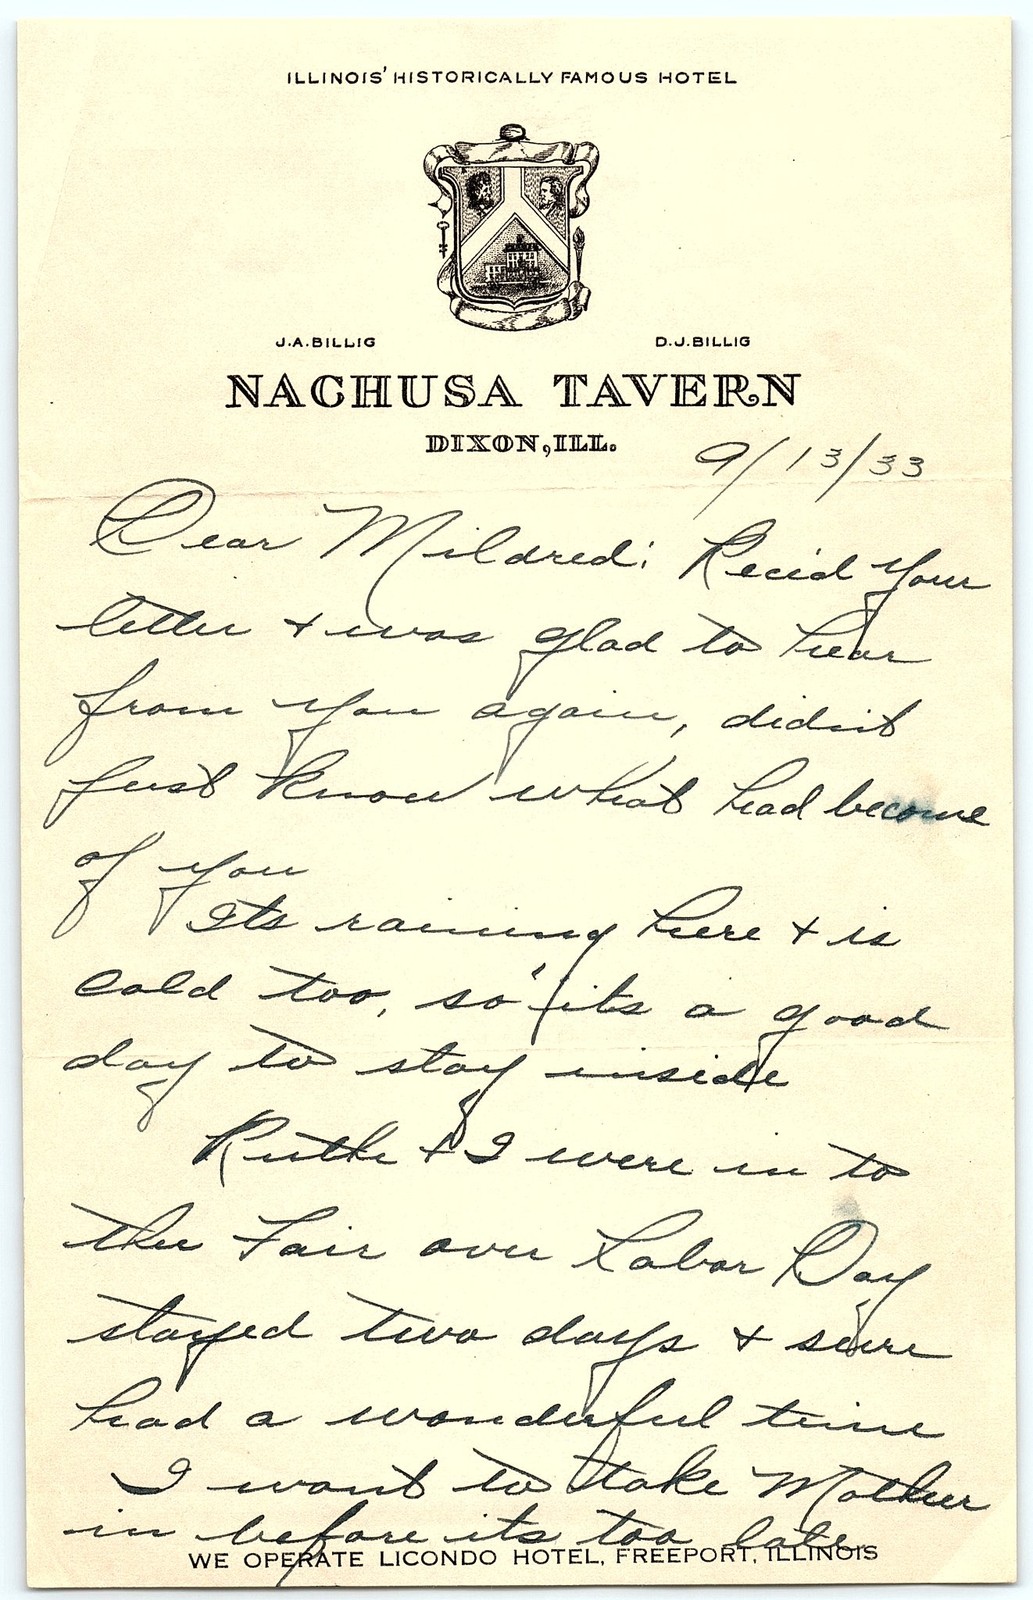 ILLINOIS' HISTORICALLY FAMOUS HOTEL
J.A. BILLIG D.J. BILLIG
NACHUSA TAVERN
DIXON, ILL.
9/13/33
Dear Mildred: Rec'd your
letter + was glad to hear
from you again, didn't
just know what had become
of you
Its raining here + is
cold too, so its a good
day to stay inside
Ruthe + I were in to
the Fair over Labor Day
stayed two days + sure
had a wonderful time
I want to take Mother
in before its too late.
WE OPERATE LICONDO HOTEL, FREEPORT, ILLINOIS